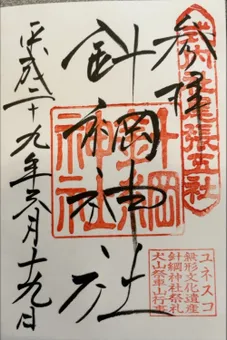 奉拝
式内社尾張五社
針綱神社
針綱神社
平成二十九年六月十九日
ユネスコ
無形文化遺産
針綱神社祭礼
犬山祭車山行事